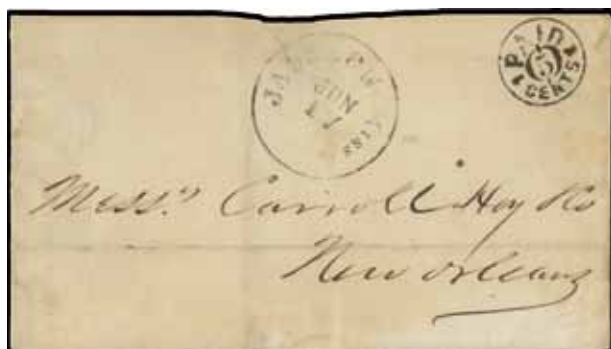 PAID
5
CENTS
JACKSON
MISS
JUN
17
Messrs Carroll Hoy & Co
New Orleans